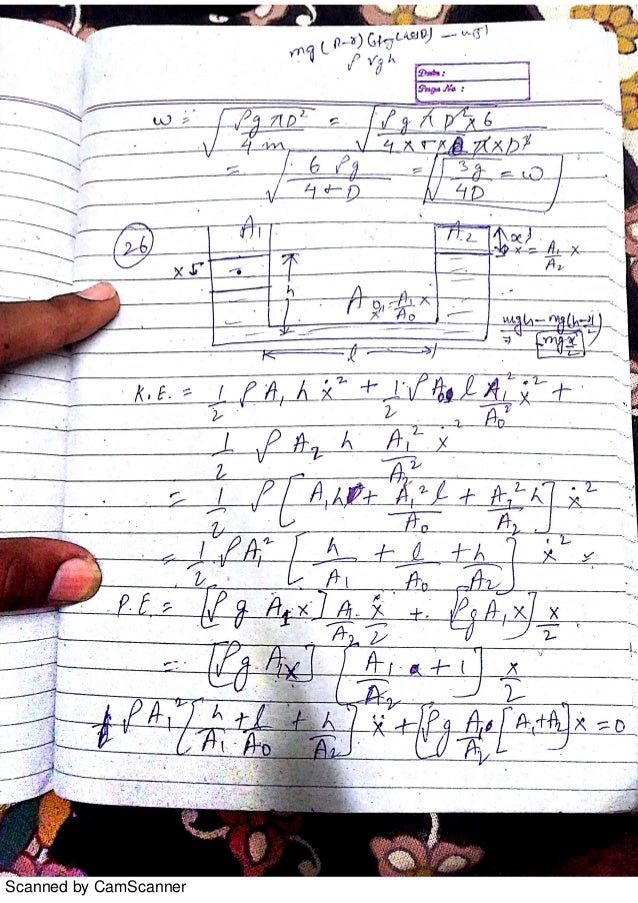 mg (R-r)
ρ V g h
Date :
Page No :
w = √(ρgπD² / 4m) = √(ρgπD²×6 / 4×r×π×D³)
= √(6ρg / 4rD) = √(3g / 4D) = w
26
A₁ A₂ x = A₁/A₂ x
x h A x₁ = A₁/A₀ x
mgh - mg(h-x/2)
l = mg x/2
K.E. = 1/2 ρ A₁ h ẋ² + 1/2 ρ A₀ l A₁²/A₀² ẋ² +
1/2 ρ A₂ h A₁²/A₂² ẋ²
= 1/2 ρ [A₁h + A₁²l/A₀ + A₁²h/A₂] ẋ²
= 1/2 ρA₁² [h/A₁ + l/A₀ + h/A₂] ẋ²
P.E = [ρ g A₁x] A₁/A₂ x/2 + [ρgA₁x] x/2
= [ρg A₁x] [A₁/A₂ + 1] x/2
ρA₁² [h/A₁ + l/A₀ + h/A₂] ẍ + [ρg A₁/A₂ [A₁+A₂] x = 0
Scanned by CamScanner